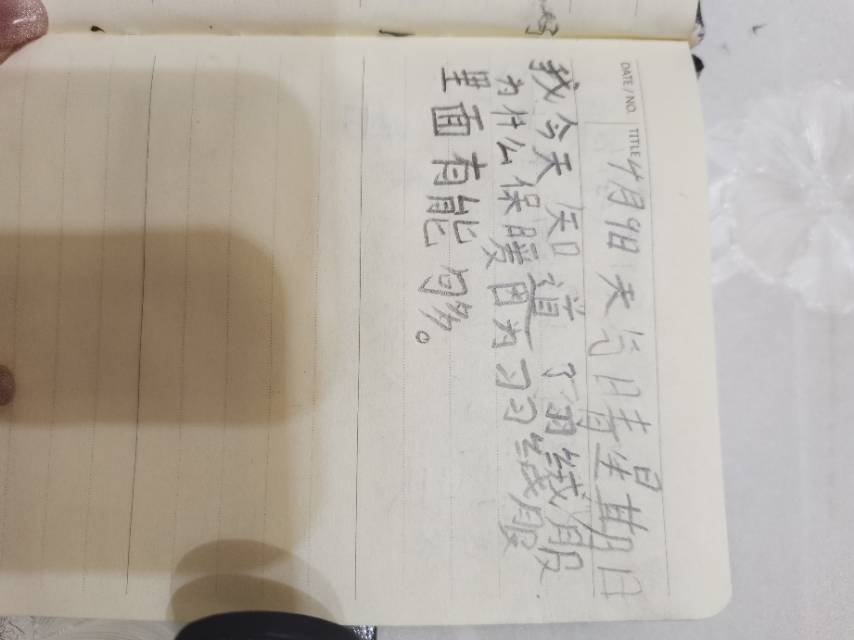 DATE / NO.
TITLE 4月9日 天气 晴 星期日
我今天知道了羽线服
为什么保暖因为羽线服
里面有能够。